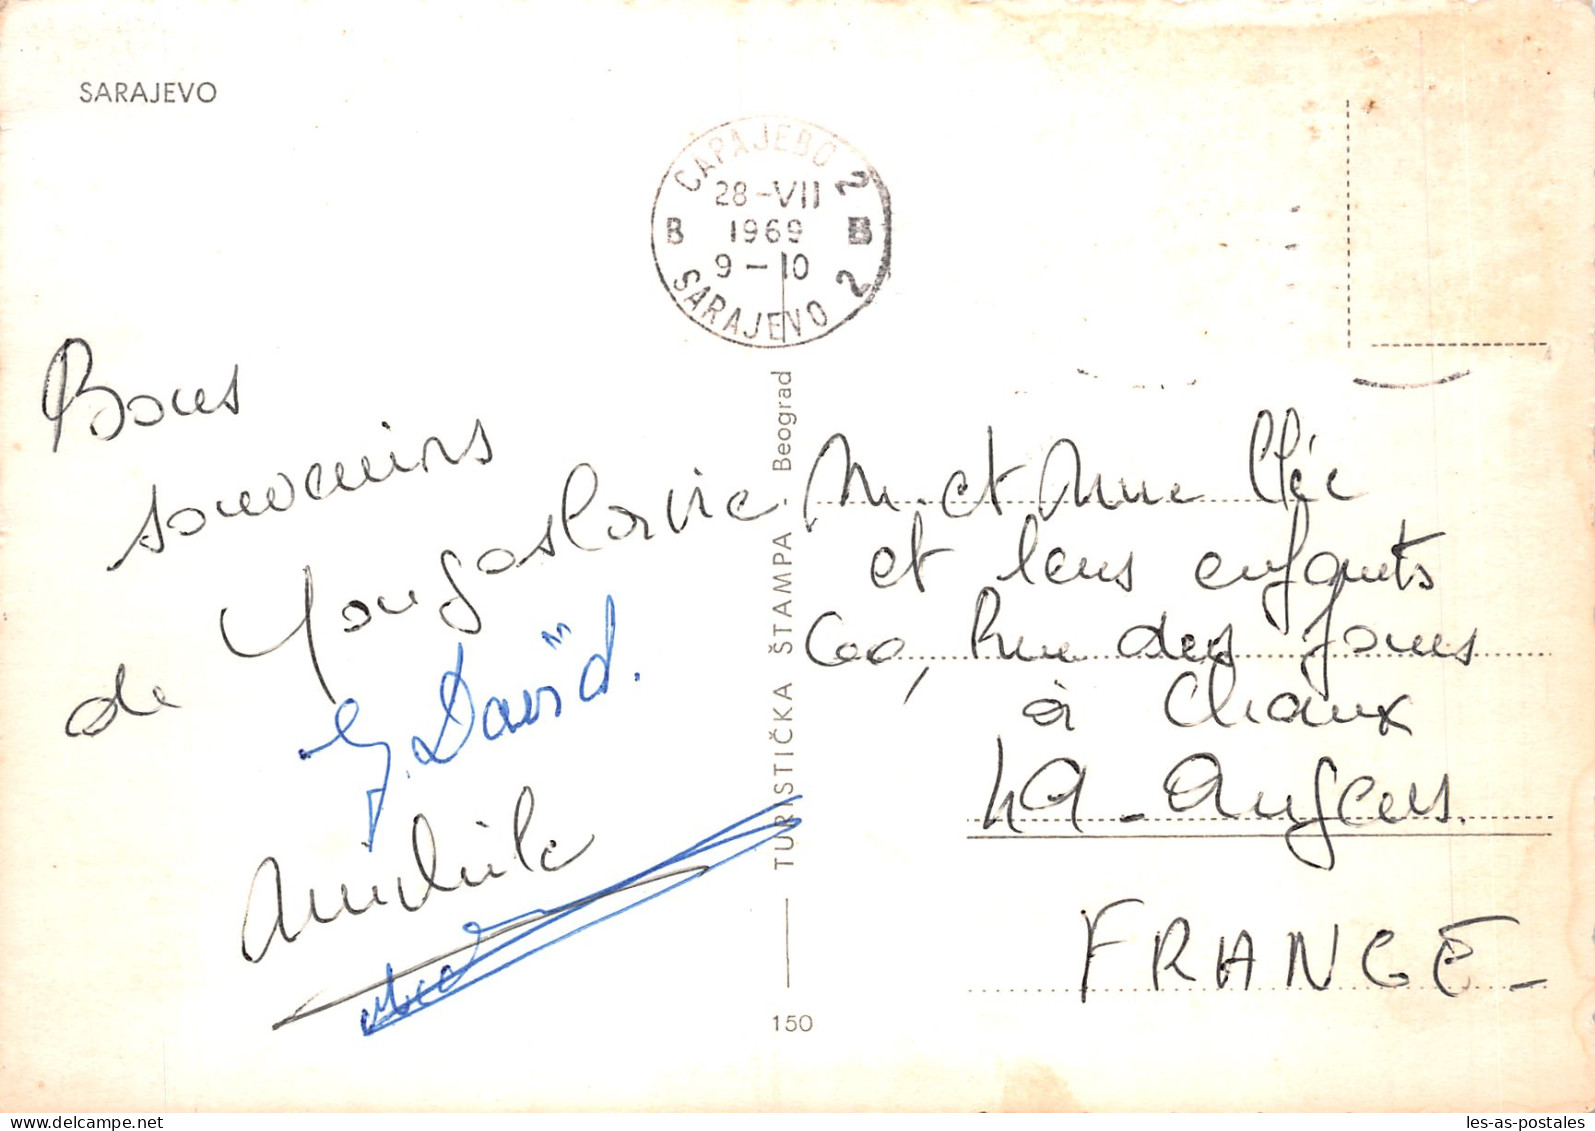 SARAJEVO
САРАЈЕВО 2
28-VII
1969
9-10
B B
SARAJEVO 2
Bons
souvenirs
de Yougoslavie
G. David.
Michèle
M. et Mme Cléc
et leurs enfants
60, Rue des Jones
à Chaux
49-Angers.
FRANCE-
TURISTIČKA ŠTAMPA - Beograd
150
les-as-postales